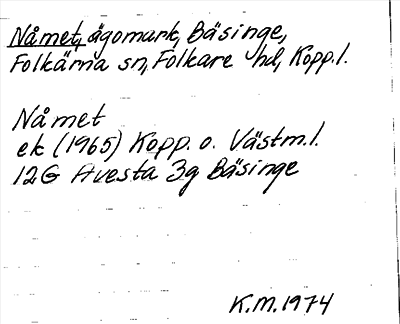 Nåmet, ägomark, Bäsinge,
Folkärna sn, Folkare hd, Kopp.l.
Nåmet
ek (1965) Kopp. o. Västm.l.
12G Avesta 3g Bäsinge
K.M. 1974